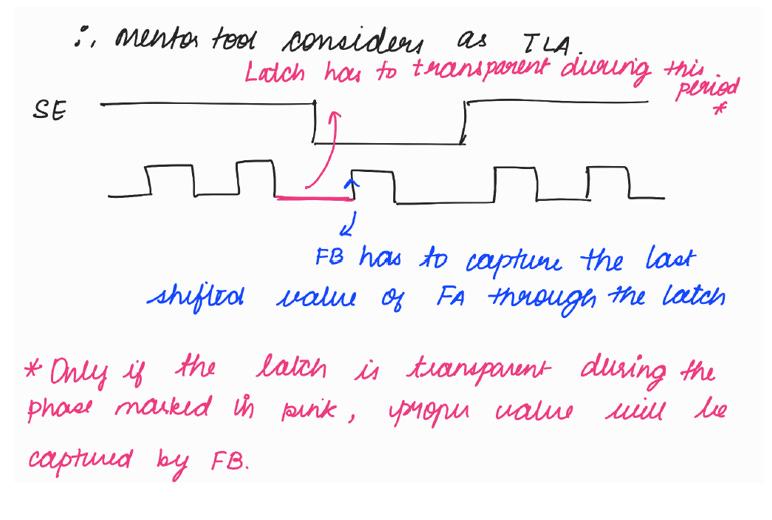 ∴ mentor tool considers as TLA.
Latch has to transparent during this
period
*
SE
FB has to capture the last
shifted value of FA through the latch
* Only if the latch is transparent during the
phase marked in pink, proper value will be
captured by FB.